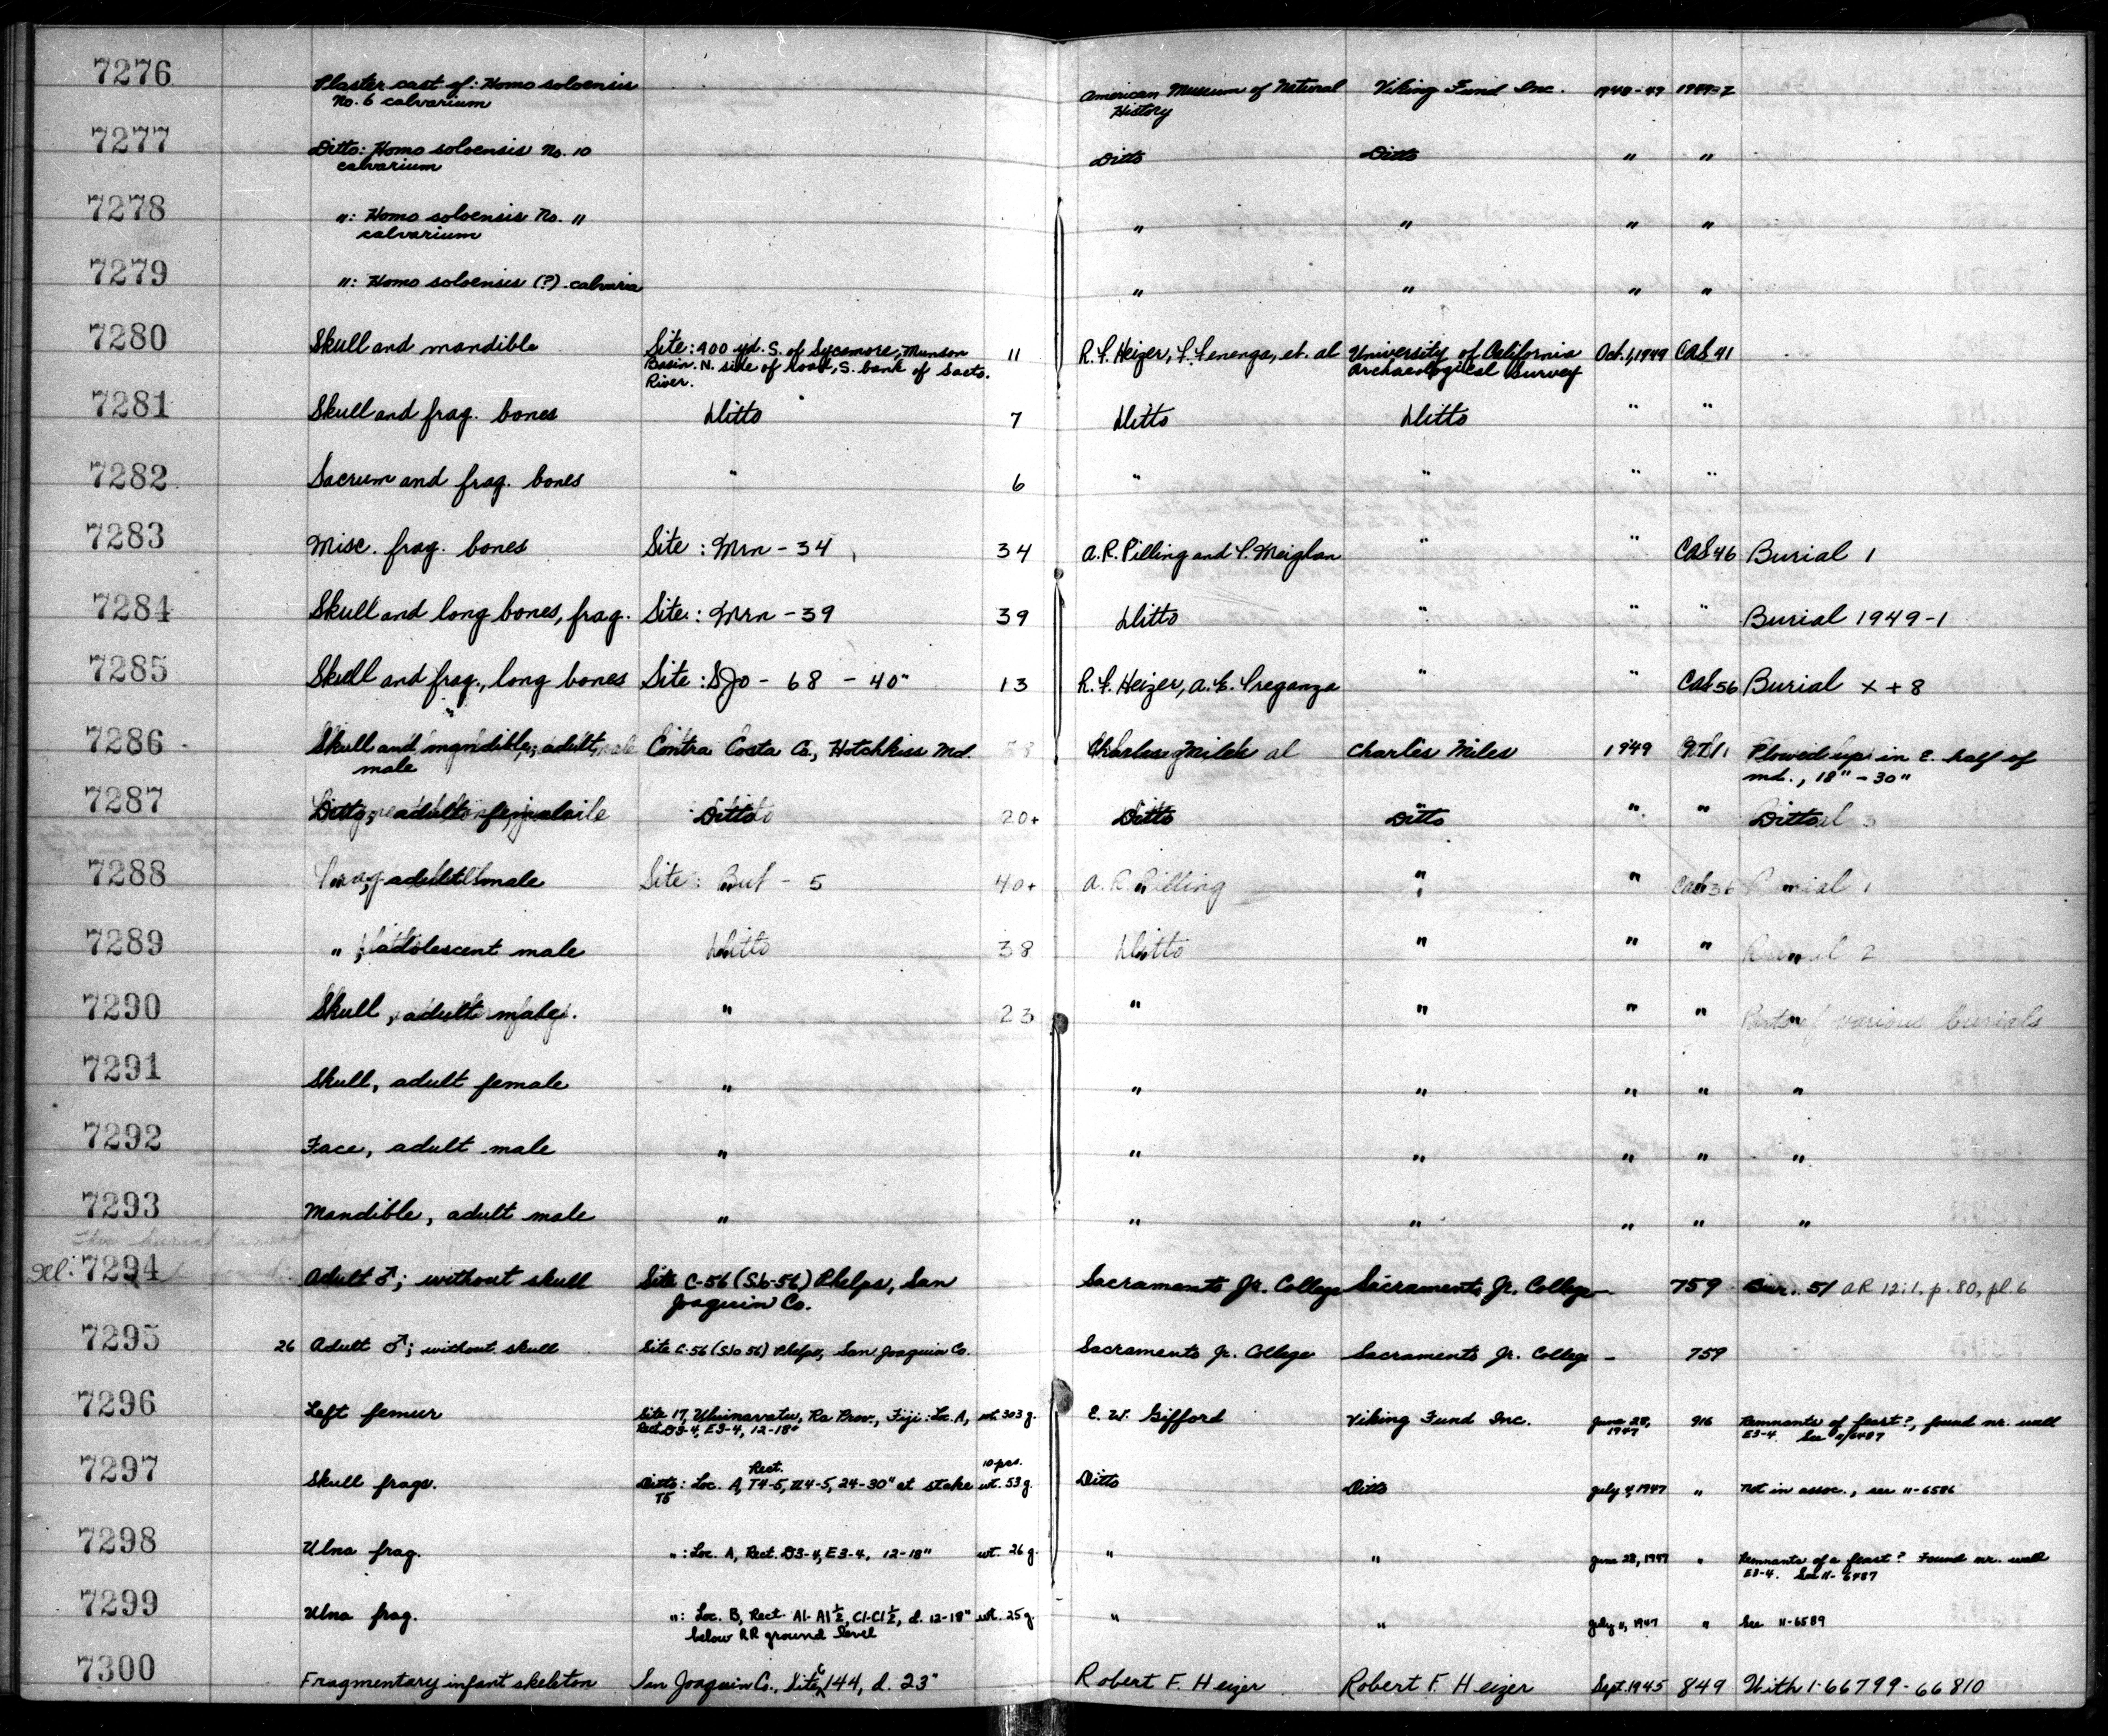 7276 Plaster cast of: Homo soloensis American Museum of Natural Viking Fund Inc. 1948-49
No. 6 calvarium History
7277 Ditto: Homo soloensis No. 10 Ditto Ditto " "
calvarium
7278 ": Homo soloensis No. 11 " " " "
calvarium
7279 ": Homo soloensis (?) calvaria " " " "
7280 Skull and mandible Site: 400 yd. S. of Sycamore, Munson 11 R. F. Heizer, F. Fenenga, et. al University of California Oct. 1, 1949 CAS 41
Basin. N. side of road, S. bank of Sacto. Archaeological Survey
River.
7281 Skull and frag. bones Ditto 7 Ditto Ditto " "
7282 Sacrum and frag. bones " 6 " " " "
7283 Misc. frag. bones Site: Mrn - 34 34 A. R. Pilling and C. Meighan " " CAS 46 Burial 1
7284 Skull and long bones, frag. Site: Mrn - 39 39 Ditto " " " Burial 1949-1
7285 Skull and frag., long bones Site: SJo - 68 - 40" 13 R. F. Heizer, A. E. Treganza " " CAS 56 Burial x + 8
7286 Skull and mandible, adult Contra Costa Co., Hotchkiss Md. Charles Miles Charles Miles 1949 Plowed up in E. half of
male md., 18" - 30"
7287 Ditto, adult female Ditto 20+ Ditto Ditto " " Ditto
7288 adult male Site: But - 5 40+ A. R. Pilling " " CAS 36 Burial 1
7289 ", adolescent male Ditto 38 Ditto " " " Burial 2
7290 Skull, adult male " 23 " " " " Parts of various burials
7291 Skull, adult female " " " " " "
7292 Face, adult male " " " " " "
7293 Mandible, adult male " " " " " "
This burial
7294 Adult ♂; without skull Site C-56 (SJo-56) Phelps, San Sacramento Jr. College Sacramento Jr. College — 759 Bur. 51 AR 12:1, p. 80, pl. 6
Joaquin Co.
7295 26 Adult ♂; without skull Site C-56 (SJo 56) Phelps, San Joaquin Co. Sacramento Jr. College Sacramento Jr. College - 759
7296 Left femur Site 17, Vuinavatu, Ra Prov., Fiji: Loc. A, wt. 303 g. E. W. Gifford Viking Fund Inc. June 28, 916 Remnants of feast?, found nr. wall
Rect. D3-4, E3-4, 12-18" 1947 E3-4. See
Rect. 10 pcs.
7297 Skull frags. Ditto: Loc. A, T4-5, U4-5, 24-30" at stake wt. 53 g. Ditto Ditto July 4, 1947 " Not in assoc., see 11-6586
T5
7298 Ulna frag. ": Loc. A, Rect. D3-4, E3-4, 12-18" wt. 26 g. " " June 28, 1947 " Remnants of a feast? Found nr. wall
E3-4. See 11-6487
7299 Ulna frag. ": Loc. B, Rect. A1-A1½, C1-C1½, d. 12-18" wt. 25 g. " " July 11, 1947 " See 11-6589
below RR ground level
7300 Fragmentary infant skeleton San Joaquin Co., Site C 144, d. 23" Robert F. Heizer Robert F. Heizer Sept. 1945 849 With 1-66799-66810